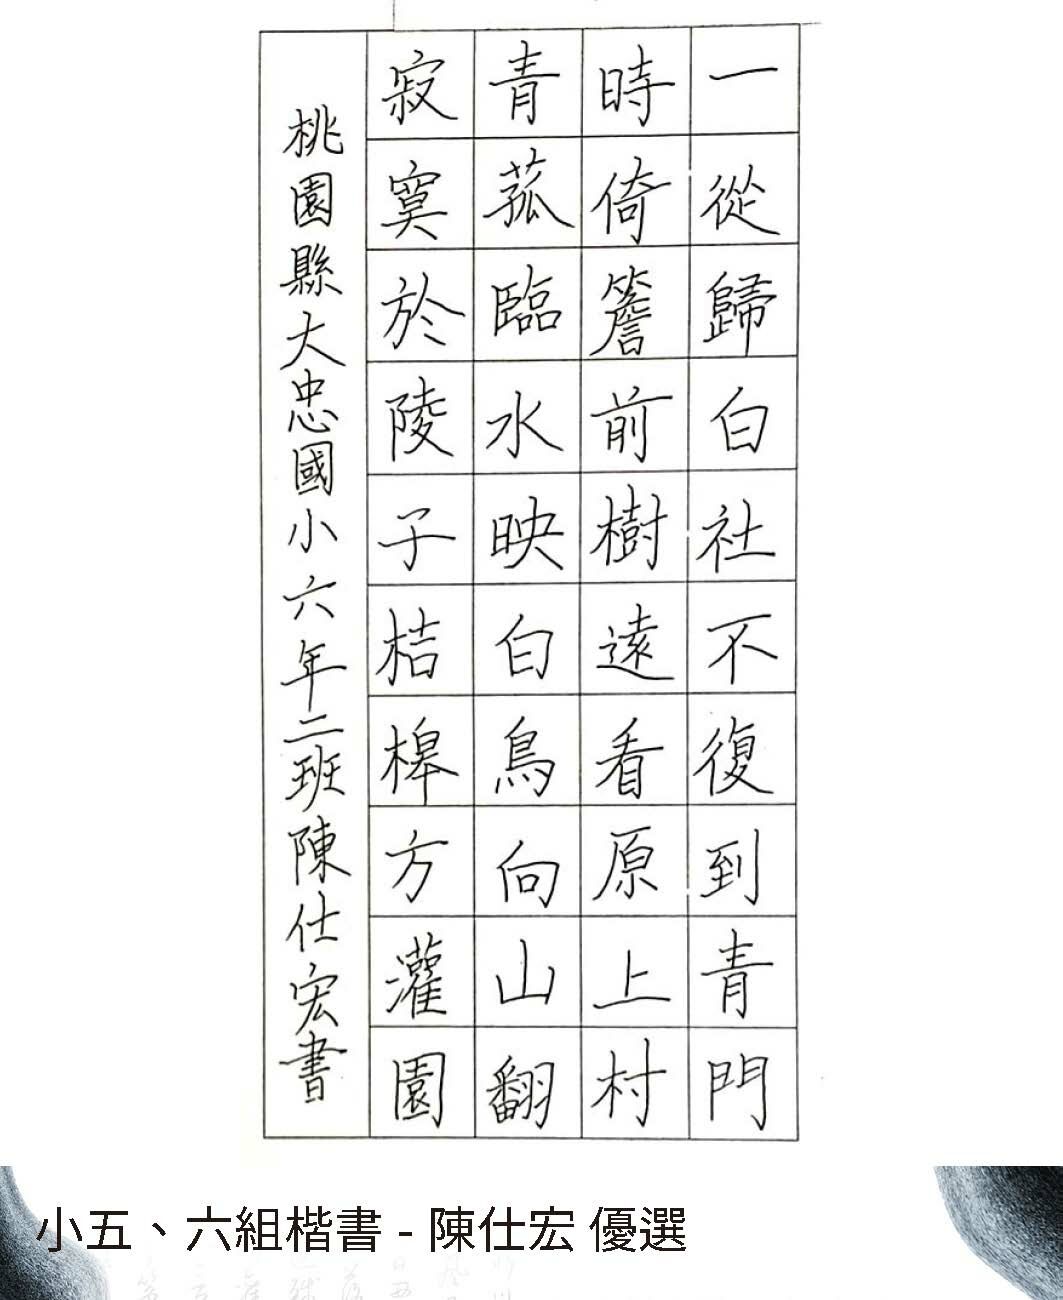 一從歸白社不復到青門
時倚簷前樹遠看原上村
青菰臨水映白鳥向山翻
寂寞於陵子桔槔方灌園
桃園縣大忠國小六年二班陳仕宏書
小五、六組楷書 - 陳仕宏 優選